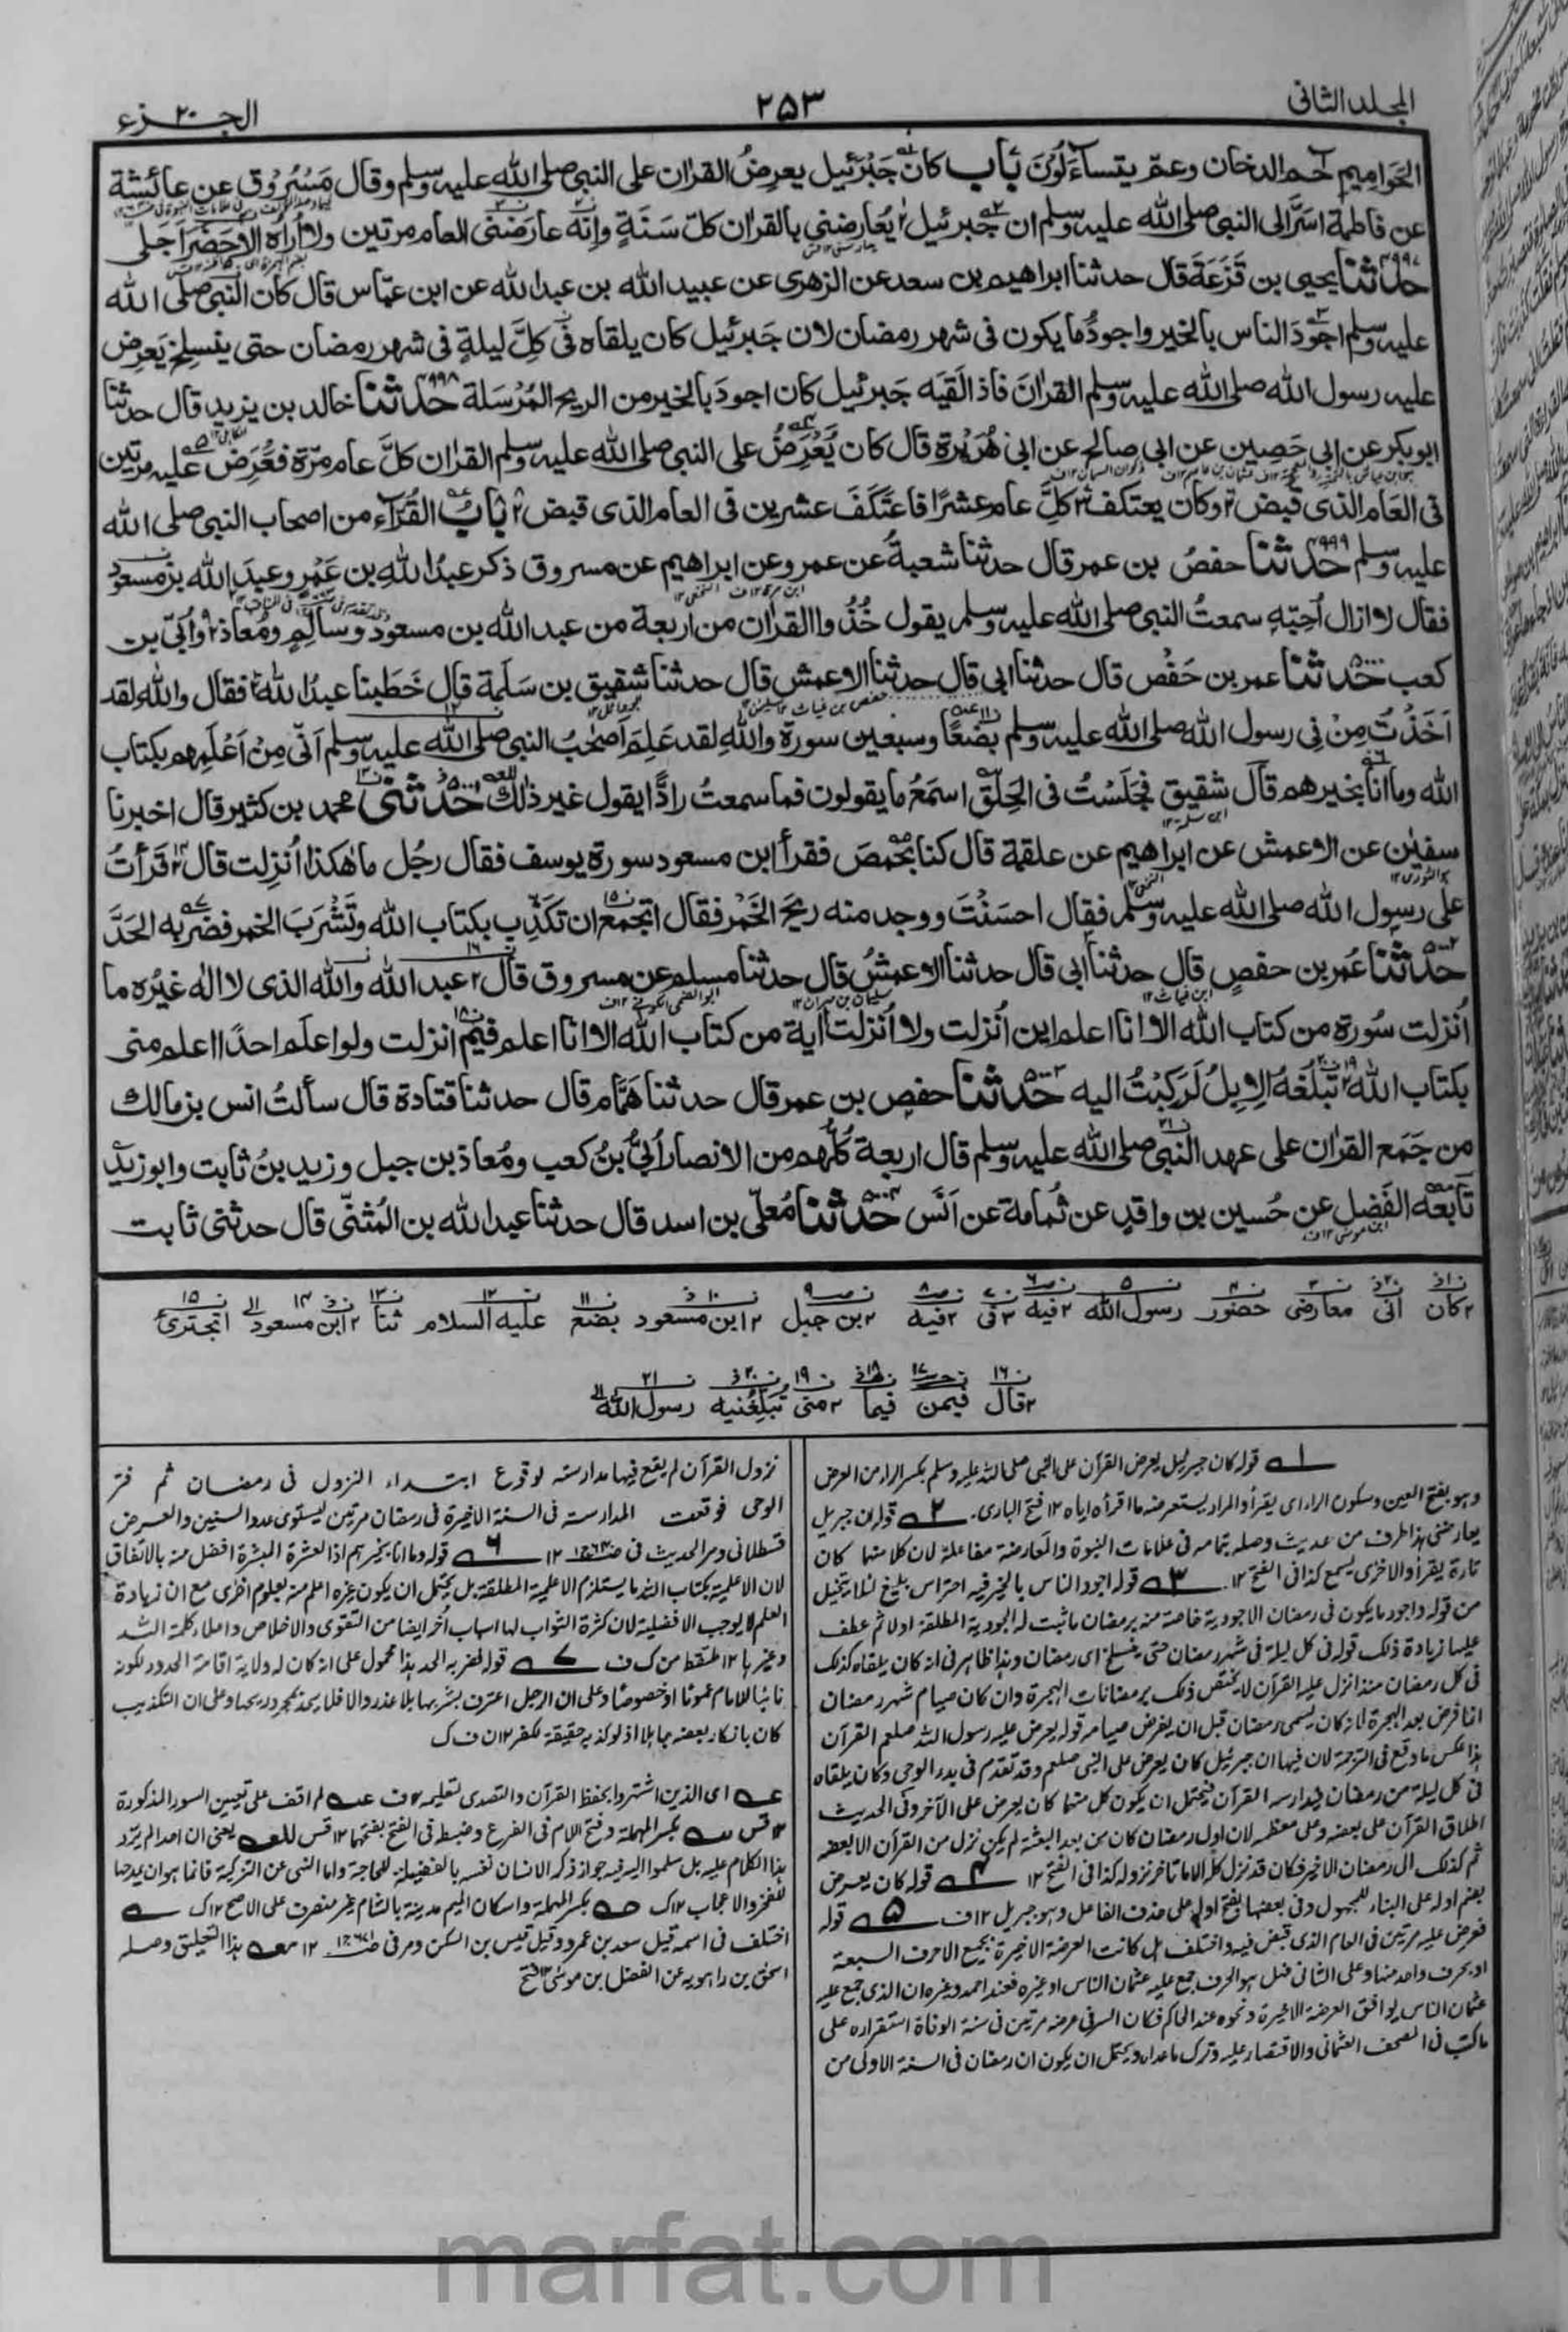 المجلد الثانى
٢٥٣
الجزء ٢٠
الحَوامِيم حٓم الدخان وعم يتساءلُون بَاب كان جَبْرَئيل يعرِضُ القرٰان على النبى صلى الله عليه وسلم وقال مَسْرُوق عن عائشة
عن فاطمة اسَرَّ الى النبى صلى الله عليه وسلم ان جبرئيل يُعارضنى بالقرٰان كلّ سَنَةٍ وانه عارَضَنى العام مرتين ولا أُراه الا حَضَرَ اَجَلى
٤٩٩٧ حدثنا يحيى بن قَزَعَة قال حدثنا ابراهيم بن سعد عن الزهرى عن عبيد الله بن عبد الله عن ابن عبّاس قال كان النبى صلى الله
عليه وسلم اجْوَدَ الناس بالخير واجودُ ما يكون فى شهر رمضان لان جَبرئيل كان يلقاه فى كلّ ليلةٍ فى شهر رمضان حتى ينسلخ يَعرِض
عليه رسول الله صلى الله عليه وسلم القرٰان فاذا لَقِيَه جَبرئيل كان اجودَ بالخير من الريح المُرْسَلة ٤٩٩٨ حدثنا خالد بن يزيد قال حدثنا
ابو بكر عن ابى حَصِين عن ابى صالح عن ابى هُرَيْرَة قال كان يُعْرَضُ على النبى صلى الله عليه وسلم القرٰان كلَّ عام مرّة فعُرِضَ عليه مرتين
فى العَام الذى قبض وكان يعتكف كلَّ عام عشرًا فاعتَكَفَ عشرين فى العام الذى قبض بَابُ القُرّاء من اصحاب النبى صلى الله
عليه وسلم ٤٩٩٩ حدثنا حفصُ بن عمر قال حدثنا شعبةُ عن عمرو عن ابراهيم عن مسروق ذكر عبدُ اللهِ بن عَمْرٍو عبدَ الله بن مسعود
فقال لا ازال اُحِبّهِ سمعتُ النبى صلى الله عليه وسلم يقول خُذُوا القرٰان من اربعة من عبد الله بن مسعود وسالِمٍ ومُعاذ واُبَىّ بن
كعب ٥٠٠٠ حدثنا عمر بن حَفْص قال حدثنا ابى قال حدثنا الاعمش قال حدثنا شقيق بن سَلَمة قال خَطَبنا عبدُ الله فقال والله لقد
اَخَذْتُ مِنْ فِى رسول الله صلى الله عليه وسلم بِضْعًا وسبعين سورة واللهِ لقد عَلِمَ اَصْحٰبُ النبى صلى الله عليه وسلم اَنّى مِنْ اَعْلَمِهم بكتاب
الله وما انا بخيرهم قال شقيق فجَلَسْتُ فى الحِلَقِ اسمَعُ ما يقولون فما سمعتُ رادًّا يقول غير ذلك ٥٠٠١ حدثنى محمد بن كثير قال اخبرنا
سفيٰن عن الاعمش عن ابراهيم عن علقمة قال كنا بحِمصَ فقرأ ابن مسعود سورة يوسف فقال رجُل ما هٰكذا اُنزِلت قال قَرَأتُ
على رسول الله صلى الله عليه وسلم فقال احسَنْتَ ووجد منه ريحَ الخَمْر فقال اتجْمَع ان تُكَذِّب بكتاب الله وتَشْرَبَ الخمر فضَرَبه الحَدَّ
٥٠٠٢ حدّثنا عُمر بن حفصٍ قال حدثنا ابى قال حدثنا الاعمشُ قال حدثنا مسلم عن مسروق قال عبد الله والله الذى لا اله غيرُه ما
اُنزلت سُورة من كتاب الله الا انا اعلم اين اُنزلت ولا اُنزلت اٰية من كتاب الله الا انا اعلم فيمَ انزلت ولو اعلَم احدًا اعلم منى
بكتاب الله تَبلُغُهُ الابِلُ لَرَكِبْتُ اليه ٥٠٠٣ حدثنا حفص بن عمر قال حدثنا هَمَّام قال حدثنا قتادة قال سألتُ انس بن مالك
من جَمَع القرٰان على عهد النبى صلى الله عليه وسلم قال اربعة كلّهم من الانصار اُبَىُّ بنُ كعب ومُعاذ بن جبل وزيد بنُ ثابت وابو زيد
تابَعَه الفَضل عن حُسين بن واقدٍ عن ثُمامة عن اَنَس ٥٠٠٤ حدثنا مُعلّى بن اسد قال حدثنا عبد الله بن المُثنّى قال حدثنى ثابت
كان انى معارضى حضور رسول الله فيه فى فيه بن جبل ابن مسعود بضع عليه السلام ثنا ابن مسعود اتجترئ
قال فيمن فيما منى تُبَلِّغُنيه رسول الله
١ قوله كان جبريل يعرض القرآن على النبى صلى الله عليه وسلم بكسر الراء من العرض
وهو بفتح العين وسكون الراء اى يقرأ والمراد يستعرضه ما اقرأه اياه ١٢ فتح البارى. ٢ قوله ان جبريل
يعارضنى هذا طرف من حديث وصله بتمامه فى علامات النبوة والمعارضة مفاعلة لان كلا منهما كان
تارة يقرأ والآخر يسمع كذا فى الفتح ١٢. ٣ قوله اجود الناس بالخير فيه احتراس بليغ لئلا يتخيل
من قوله واجود ما يكون فى رمضان الاجودية خاصة منه برمضان ما ثبت له الجودية المطلقة اولا ثم عطف
عليها زيادة ذلك قوله فى كل ليلة فى شهر رمضان حتى ينسلخ اى رمضان وهذا ظاهر فى انه كان يلقاه كذلك
فى كل رمضان منذ انزل عليه القرآن لا يختص ذلك برمضانات الهجرة وان كان صيام شهر رمضان
انما فرض بعد الهجرة لانه كان يسمى رمضان قبل ان يفرض صيامه قوله يعرض عليه رسول الله صلعم القرآن
هذا عكس ما وقع فى الترجمة لان فيها ان جبرئيل كان يعرض على النبى صلعم وقد تقدم فى بدء الوحى وكان يلقاه
فى كل ليلة من رمضان فيدارسه القرآن فيحتمل ان يكون كل منهما كان يعرض على الآخر وفى الحديث
اطلاق القرآن على بعضه وعلى معظمه لان اول رمضان كان من بعد البعثة لم يكن نزل من القرآن الا بعضه
ثم كذلك الى رمضان الاخير فكان قد نزل كله الا ما تاخر نزوله كذا فى الفتح ١٢ ٤ قوله كان يعرض
بضم اوله على البناء للمجهول وفى بعضها بفتح اوله على حذف الفاعل وهو جبريل ١٢ ف ٥ قوله
فعرض عليه مرتين فى العام الذى قبض فيه واختلف هل كانت العرضة الاخيرة بجميع الاحرف السبعة
او بحرف واحد منها وعلى الثانى فهل هو الحرف جمع عليه عثمان الناس او غيره فعند احمد وغيره ان الذى جمع عليه
عثمان الناس يوافق العرضة الاخيرة ونحوه عند الحاكم فكان السر فى عرضه مرتين فى سنة الوفاة استقراره على
ما كتب فى المصحف العثمانى والاقتصار عليه وترك ما عداه ويحتمل ان يكون ان رمضان فى السنة الاولى من
نزول القرآن لم يقع فيها مدارسته لوقوع ابتداء النزول فى رمضان ثم فتر
الوحى فوقعت المدارسة فى السنة الاخيرة فى رمضان مرتين ليستوى عدد السنين والعرض
قسطلانى ومر الحديث فى ١٢ ٦ قوله وما انا بخيرهم اذ العشرة المبشرة افضل منه بالاتفاق
لان الاعلمية بكتاب الله ما يستلزم الاعلمية المطلقة بل يحتمل ان يكون غيره اعلم منه بعلوم اخرى مع ان زيادة
العلم لا يوجب الافضلية لان كثرة الثواب لها اسباب أخر ايضا من التقوى والاخلاص واعلاء كلمة الله
وغيرها ١٢ ملتقط من ك ف ٧ قوله فضربه الحد هذا محمول على انه كان له ولاية اقامة الحدود لكونه
نائبا للامام عموما او خصوصا وعلى ان الرجل اعترف بشربها بلا عذر والا فلا يحد بمجرد ريحها وعلى ان التكذيب
كان بانكار بعضه جاهلا اذ لو كذب حقيقة لكفر ١٢ ن ف ك
عه اى الذين اشتهروا بحفظ القرآن والتصدى لتعليمه ١٢ ف عه لم اقف على تعيين السور المذكورة
١٢ قس سه بكسر المهملة وفتح اللام فى الفرع وضبط فى الفتح بفتحهما ١٢ قس للعه يعنى ان احدا لم يرد
هذا الكلام عليه بل سلموا اليه فيه جواز ذكر الانسان نفسه بالفضيلة للحاجة واما النهى عن التزكية فانما هو ان يمدحها
للفخر والاعجاب ١٢ ك صه بكسر المهملة واسكان الميم مدينة بالشام غير منصرف على الاصح ١٢ ك
اختلف فى اسمه قيل سعد بن عمرو وقيل قيس بن السكن ومر فى ١٢ معه هذا التعليق وصله
اسحق بن راهويه عن الفضل بن موسى ١٢ فتح
marfat.com